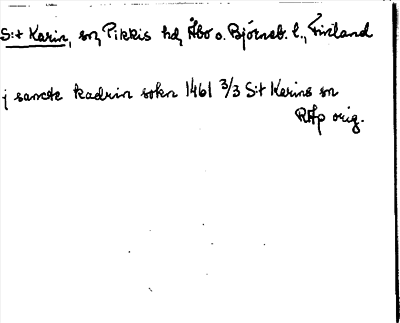 S:t Karin, sn, Pikkis hd, Åbo o. Björneb. l., Finland
j sancte kadrin sokn 1461 3/3 S:t Karins sn
RAp orig.